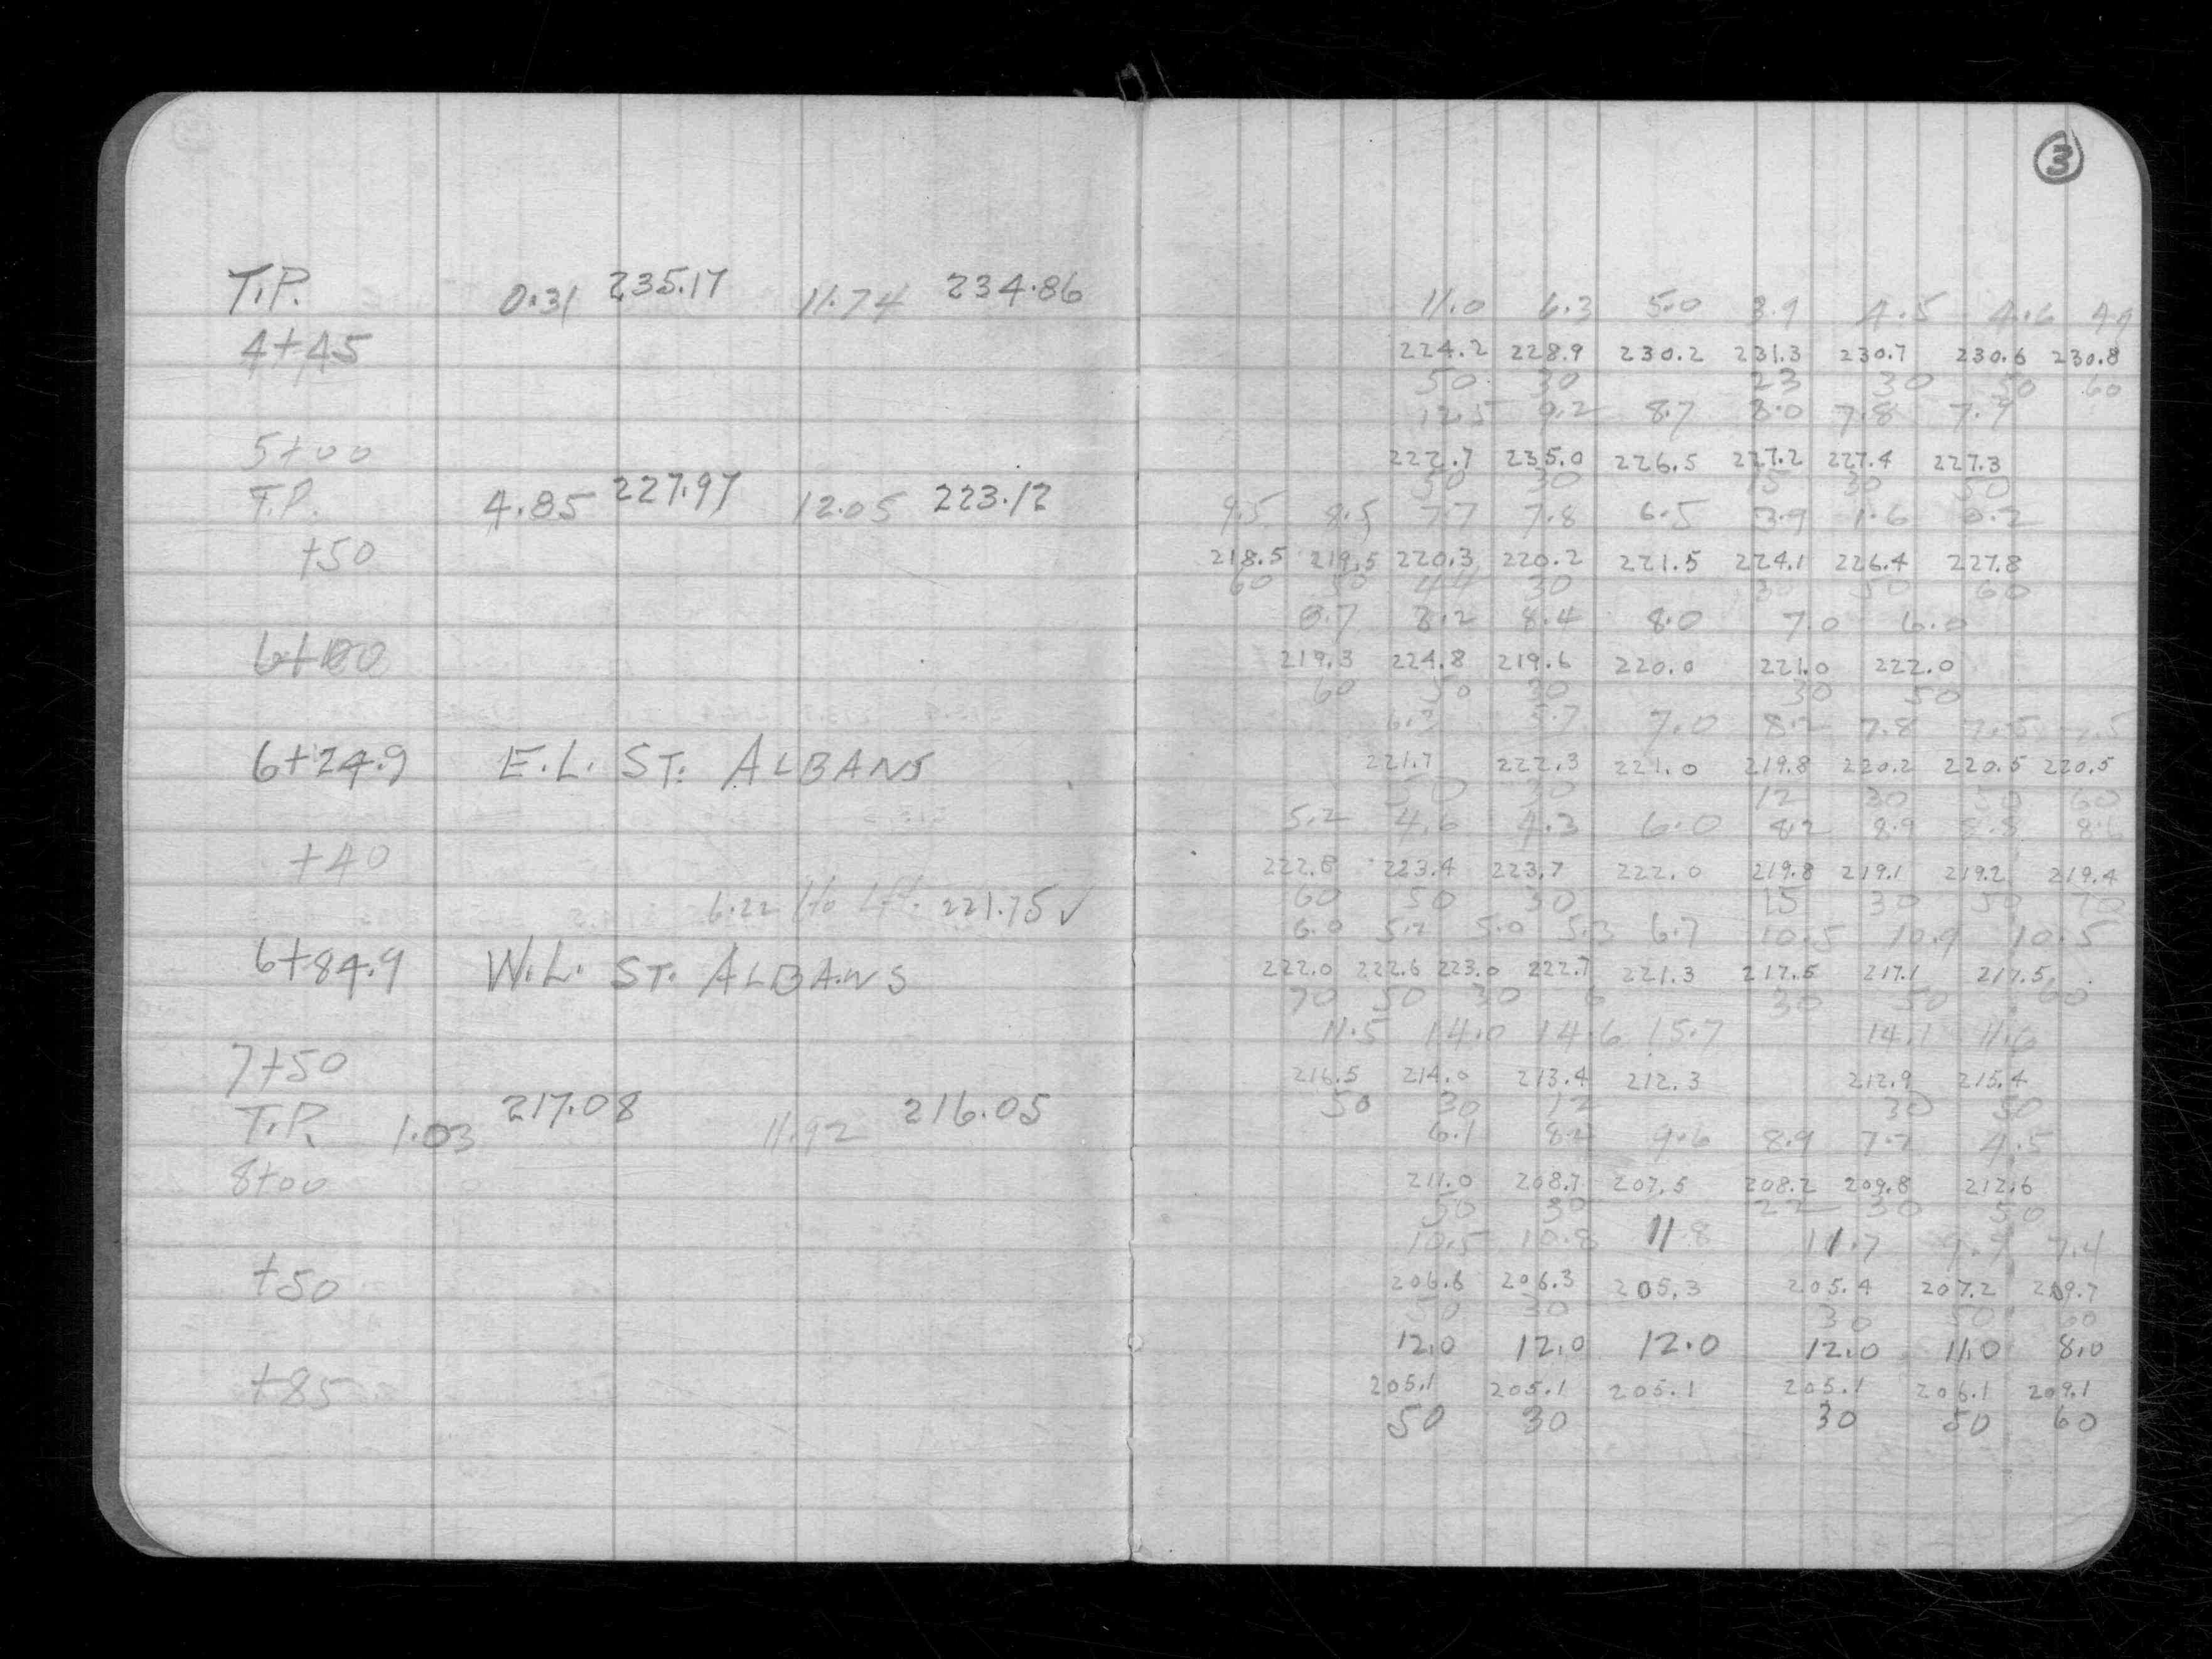 3
T.P. 0.31 235.17 11.74 234.86
11.0 6.3 5.0 3.9 4.5 4.6 4.4
4+45 224.2 228.9 230.2 231.3 230.7 230.6 230.8
50 30 23 30 50 60
12.5 9.2 8.7 8.0 7.8 7.9
5+00 222.7 235.0 226.5 227.2 227.4 227.3
50 30 15 30 50
T.P. 4.85 227.97 12.05 223.12
9.5 8.5 7.7 7.8 6.5 3.9 1.6 0.2
+50 218.5 219.5 220.3 220.2 221.5 224.1 226.4 227.8
60 50 44 30 30 50 60
8.7 8.2 8.4 8.0 7.0 6.0
6+00 219.3 224.8 219.6 220.0 221.0 222.0
60 50 30 30 50
6.3 5.7 7.0 8.2 7.8 7.5 7.5
6+24.9 E.L. ST. ALBANS 221.7 222.3 221.0 219.8 220.2 220.5 220.5
50 30 12 30 50 60
5.2 4.6 4.3 6.0 8.2 8.9 8.8 8.6
+40 222.8 223.4 223.7 222.0 219.8 219.1 219.2 219.4
60 50 30 15 30 50 70
6.22 221.75 ✓
6.0 5.2 5.0 5.3 6.7 10.5 10.9 10.5
6+84.9 W.L. ST. ALBANS 222.0 222.6 223.0 222.7 221.3 217.5 217.1 217.5
70 50 30 6 30 50 60
11.5 14.0 14.6 15.7 14.1 11.6
7+50 216.5 214.0 213.4 212.3 212.9 215.4
50 30 12 30 50
T.P. 1.03 217.08 11.92 216.05
6.1 8.4 9.6 8.9 7.7 4.5
8+00 211.0 208.7 207.5 208.2 209.8 212.6
50 30 22 30 50
10.5 10.8 11.8 11.7 9.9 7.4
+50 206.6 206.3 205.3 205.4 207.2 209.7
50 30 30 50 60
12.0 12.0 12.0 12.0 11.0 8.0
+85 205.1 205.1 205.1 205.1 206.1 209.1
50 30 30 50 60